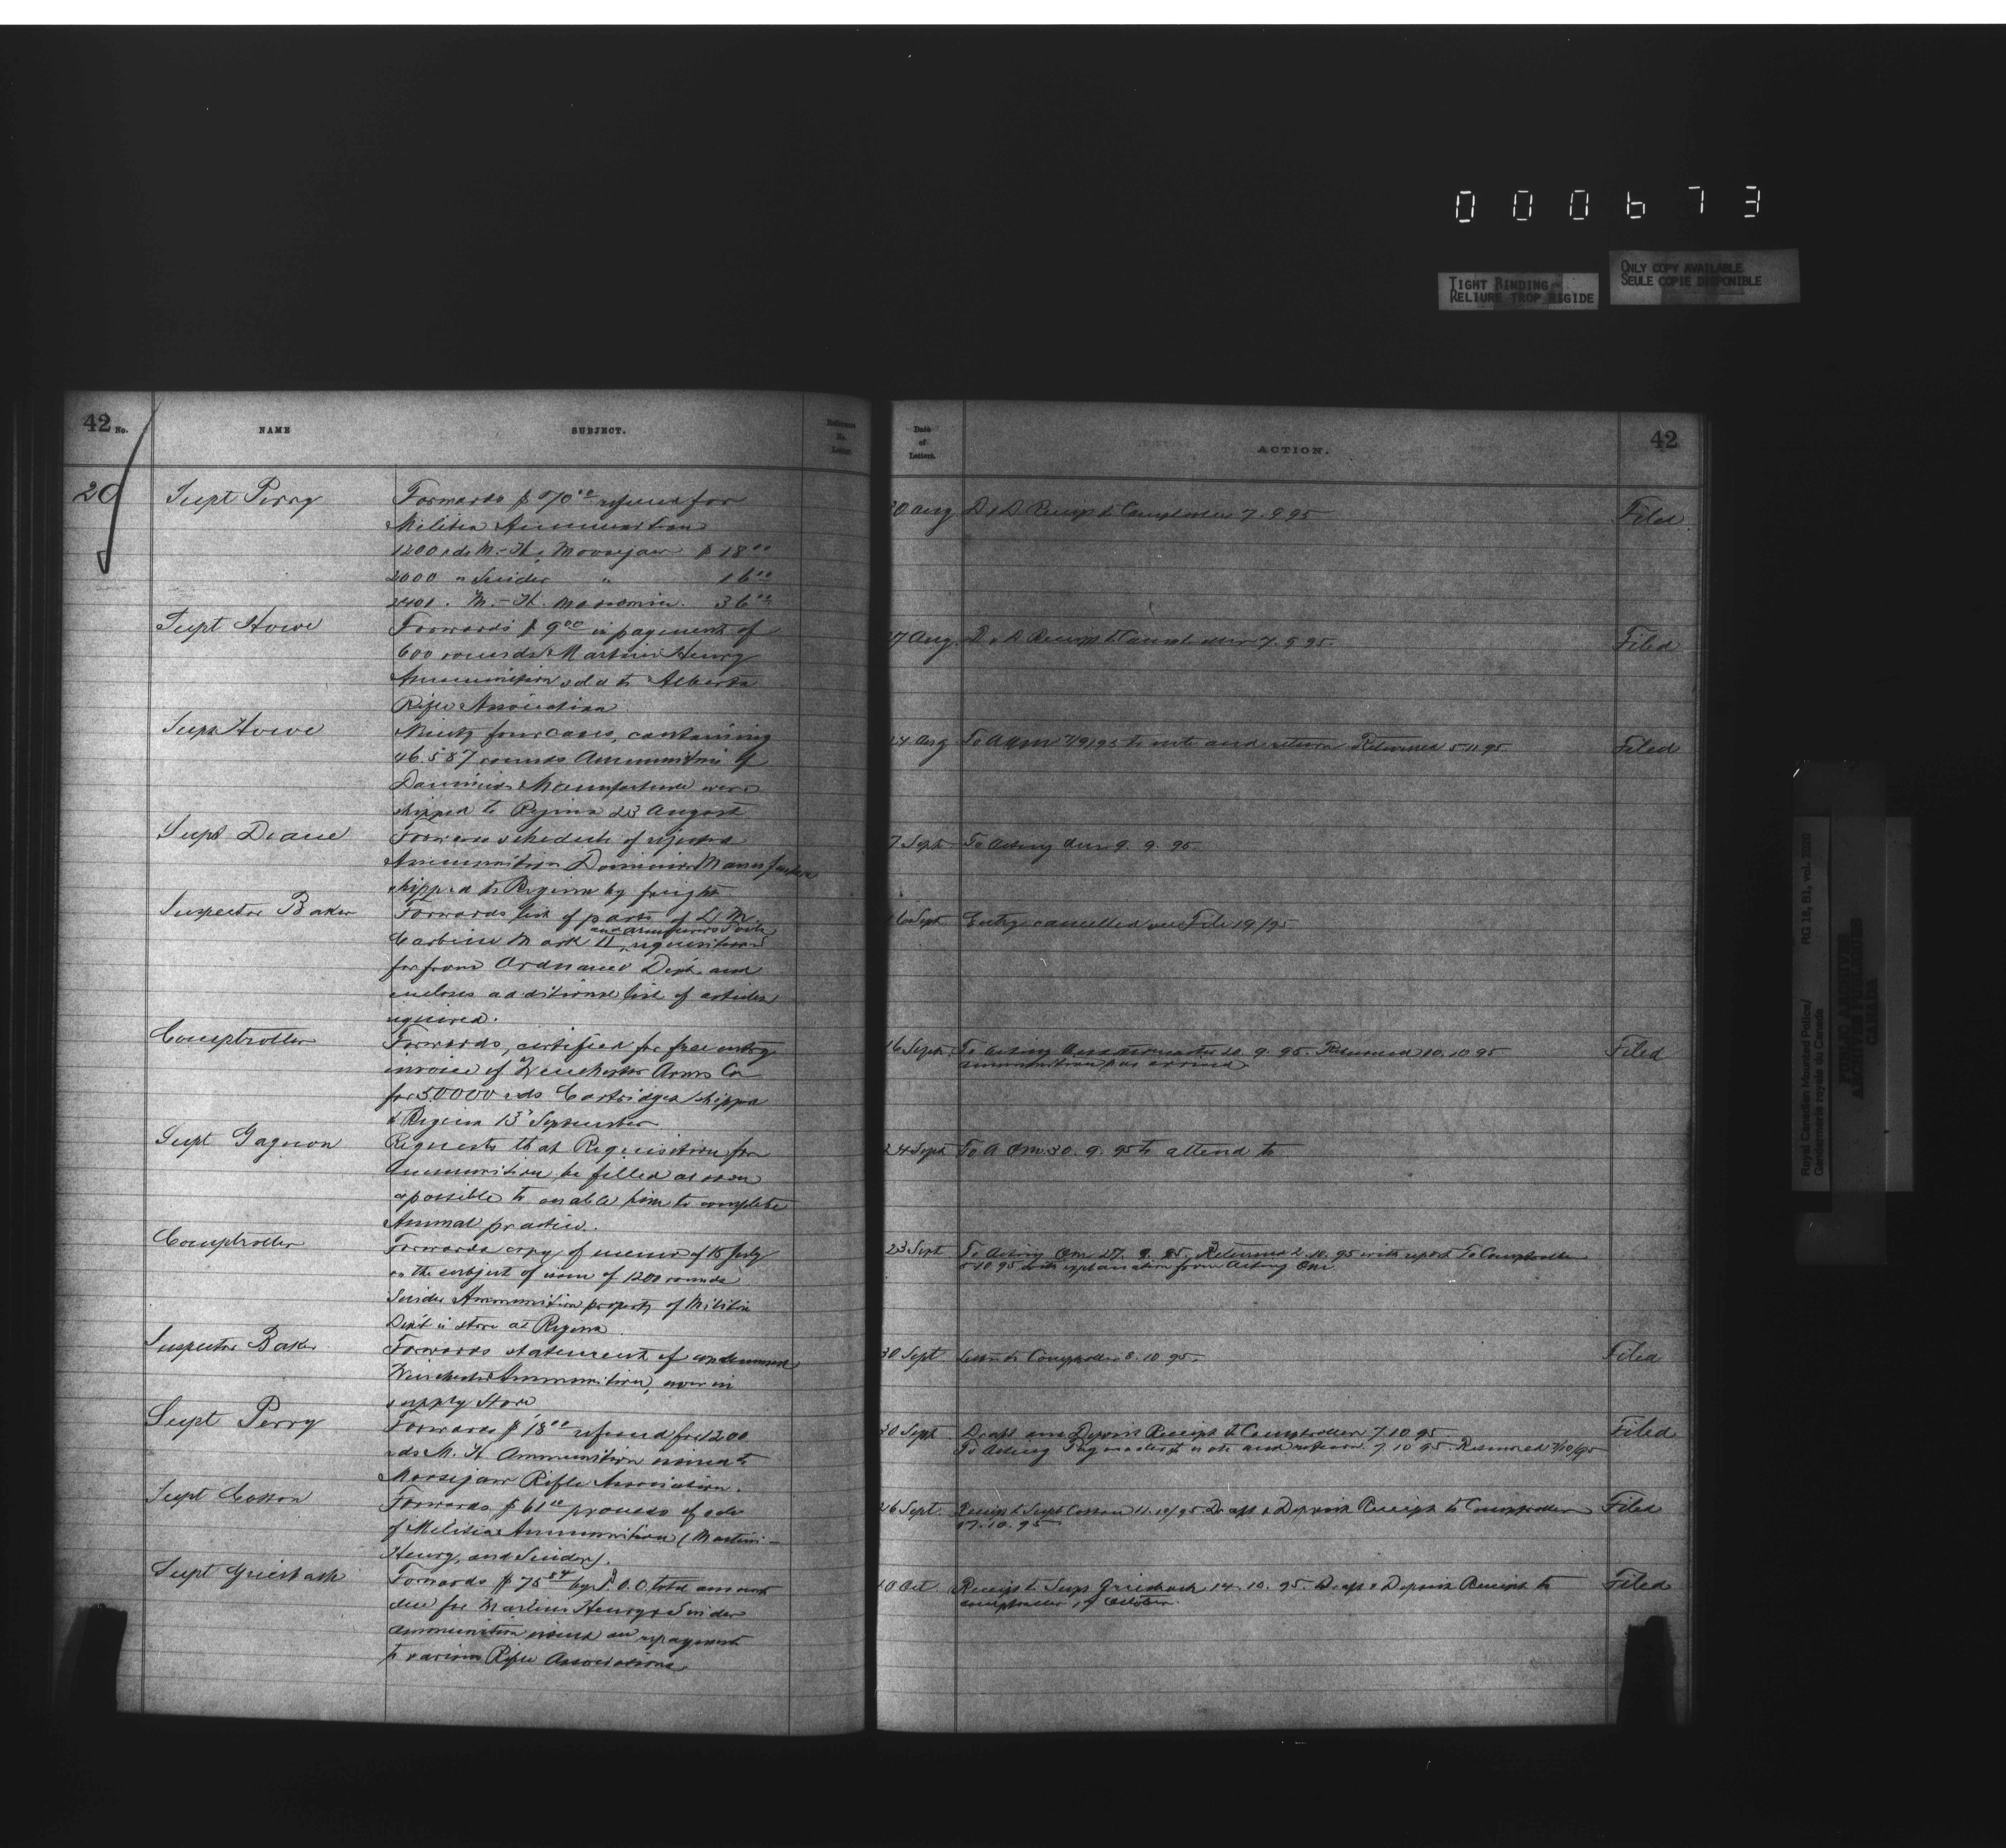 000673
TIGHT BINDING
RELIURE TROP RIGIDE
ONLY COPY AVAILABLE
SEULE COPIE DISPONIBLE
42 No.
NAME
SUBJECT.
Reference No. Letter.
Date of Letters.
ACTION.
42
20
Supt Perry
Forwards $ 70.00 refund for
Militia Ammunition
1200 rds M.-H. Moosejaw $ 18.00
2000 " Snider " 16.00
2400 . M.-H. Moosomin. 36.00
30 Aug
D & D Receipt to Comptroller 7.9.95
Filed.
Supt Howe
Forwards $ 9.00 in payment of
600 rounds Martini Henry
Ammunition sold to Alberta
Rifle Association
27 Aug
D & D Receipt to Comptroller 7.9.95
Filed
Supt Howe
Ninety four cases, containing
46.587 rounds Ammunition of
Dominion Manufacture were
shipped to Regina 23 August
24 Aug
To AQM 7/9/95 to note and return Returned 5.11.95
Filed
Supt Deane
Forwards schedule of rejected
Ammunition Dominion Manufacture
shipped to Regina by freight
7 Sept
To Acting QM 9. 9. 95
Inspector Baker
Forwards list of parts of L. M.
Carbine Mark II and armourers tools requisitioned
for from Ordnance Dept. and
encloses additional list of articles
required.
16 Sept
Entry cancelled see File 19/95
Comptroller
Forwards, certified for free entry
invoice of Winchester Arms Co
for 50000 rds Cartridges shipped
to Regina 13 September
16 Sept
To Acting Quartermaster 20. 9. 95. Returned 10. 10 95
ammunition has arrived
Filed
Supt Gagnon
Requests that Requisition for
Ammunition be filled as soon
as possible to enable him to complete
Annual practice.
24 Sept
To A QM 30. 9. 95 to attend to
Comptroller
Forwards copy of memo of 15 July
on the subject of issue of 1200 rounds
Snider Ammunition property of Militia
Dept in store at Regina
23 Sept
To Acting QM 27. 9. 95, Returned 2. 10. 95 with report To Comptroller
5 10 95 with explanation from Acting QM.
Inspector Baker
Forwards statement of condemned
Winchester Ammunition, now in
supply Store
30 Sept
Letter to Comptroller 8. 10 95.
Filed
Supt Perry
Forwards $ 18.00 refund for 1200
rds M. H Ammunition issued to
Moosejaw Rifle Association.
30 Sept
Draft and Deposit Receipt to Comptroller 7. 10 95
To Acting Paymaster to note and return. 7 10 95 Returned 7/10/95
Filed
Supt Cotton
Forwards $ 61.00 proceeds of sale
of Militia Ammunition (Martini -
Henry, and Snider).
26 Sept.
Receipt to Supt Cotton 11. 10/95 Draft & Deposit Receipt to Comptroller
17. 10. 95
Filed
Supt Griesbach
Forwards $ 75.84 by P. O. O. total amount
due for Martini Henry & Snider
ammunition issued on repayment
to various Rifle Associations
10 Oct
Receipt to Supt Griesbach 14. 10. 95. Draft & Deposit Receipt to
Comptroller October
Filed
Royal Canadian Mounted Police/
Gendarmerie royale du Canada
RG 18, B1, vol. 2020
PUBLIC ARCHIVES
ARCHIVES PUBLIQUES
CANADA